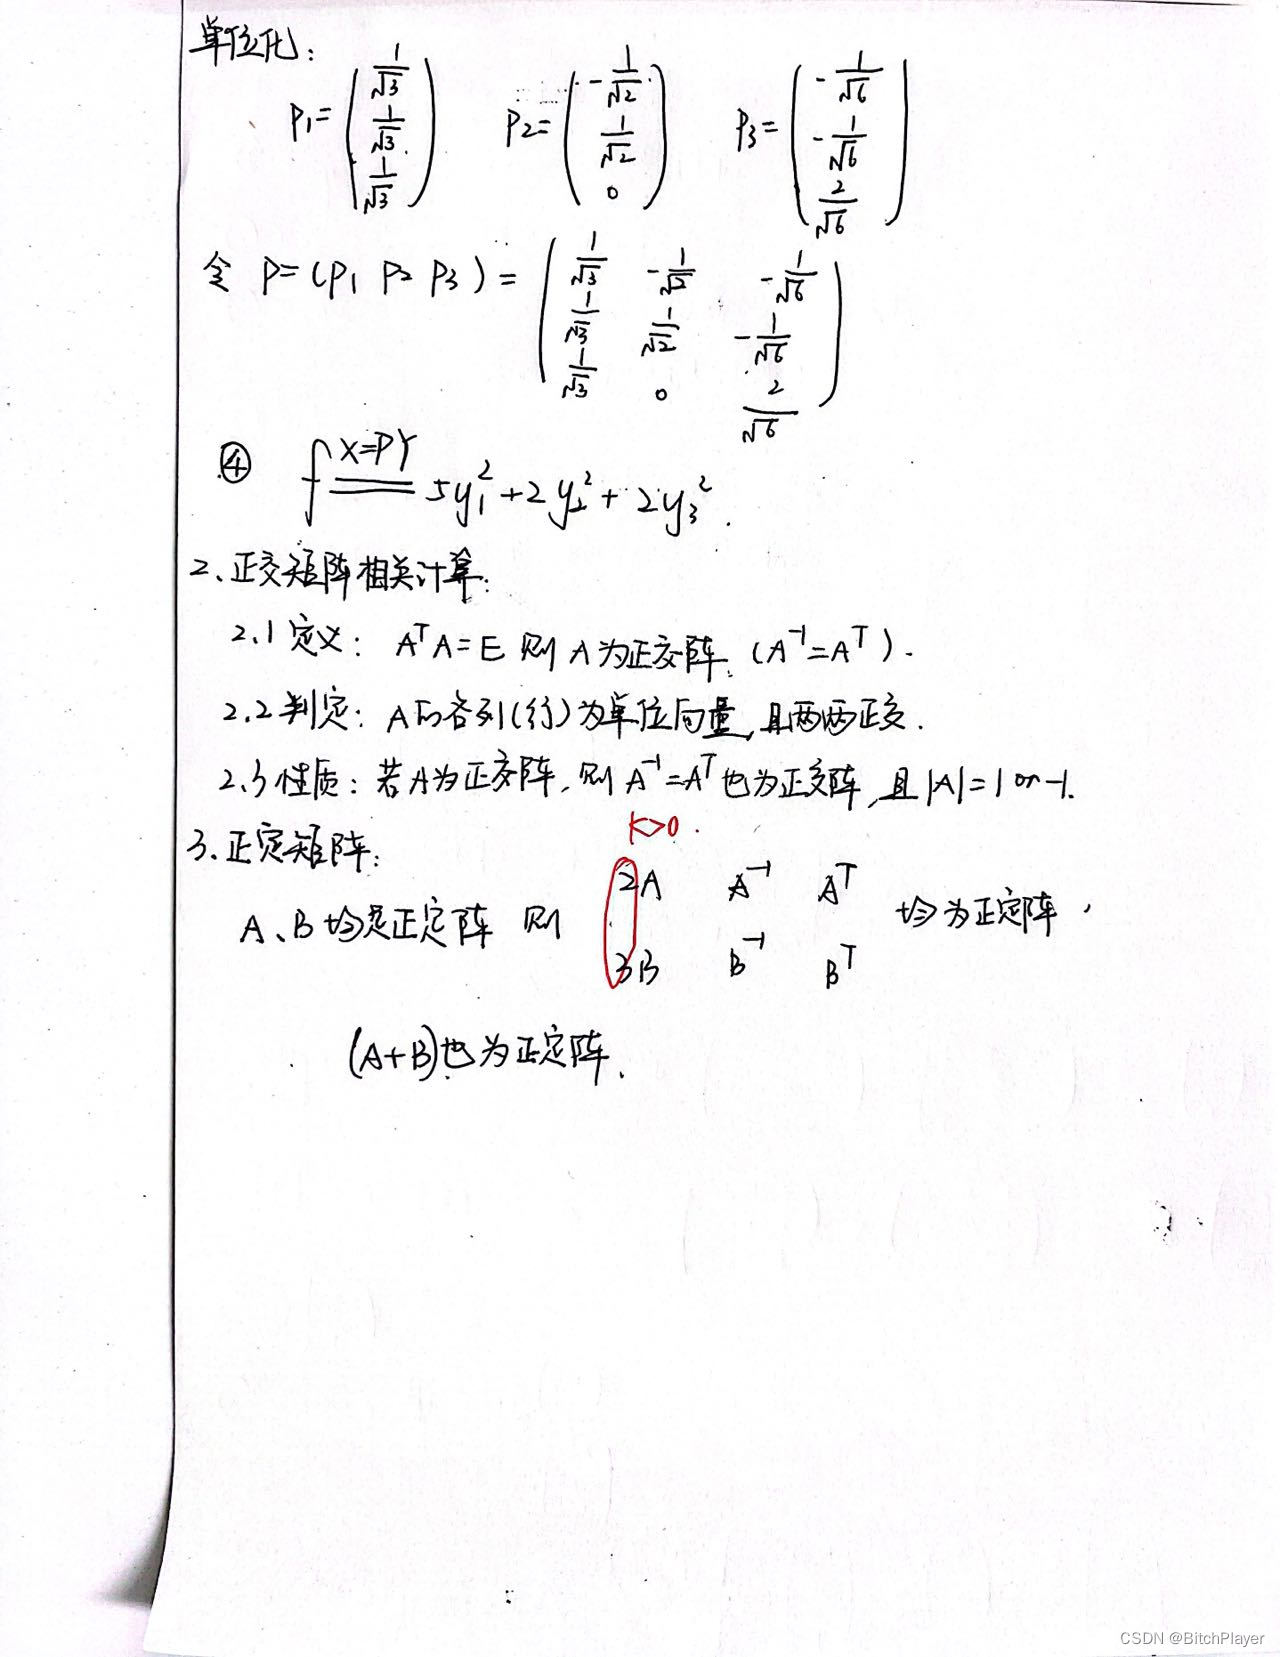 单位化：
P₁=(1/√3 1/√3 1/√3) P₂=(-1/√2 1/√2 0) P₃=(-1/√6 -1/√6 2/√6)
令 P=(P₁ P₂ P₃)=(1/√3 -1/√2 -1/√6
1/√3 1/√2 -1/√6
1/√3 0 2/√6)
④ f X=PY 5y₁²+2y₂²+2y₃².
2、正交矩阵相关计算：
2.1 定义： AᵀA=E 则 A为正交阵.（A⁻¹=Aᵀ）.
2.2 判定： A的各列(行)为单位向量,且两两正交.
2.3 性质：若A为正交阵,则 A⁻¹=Aᵀ也为正交阵,且|A|=1 or -1.
3、正定矩阵：
K>0.
2A A⁻¹ Aᵀ
A、B均是正定阵 则 均为正定阵,
3B B⁻¹ Bᵀ
(A+B)也为正定阵.
CSDN @BitchPlayer